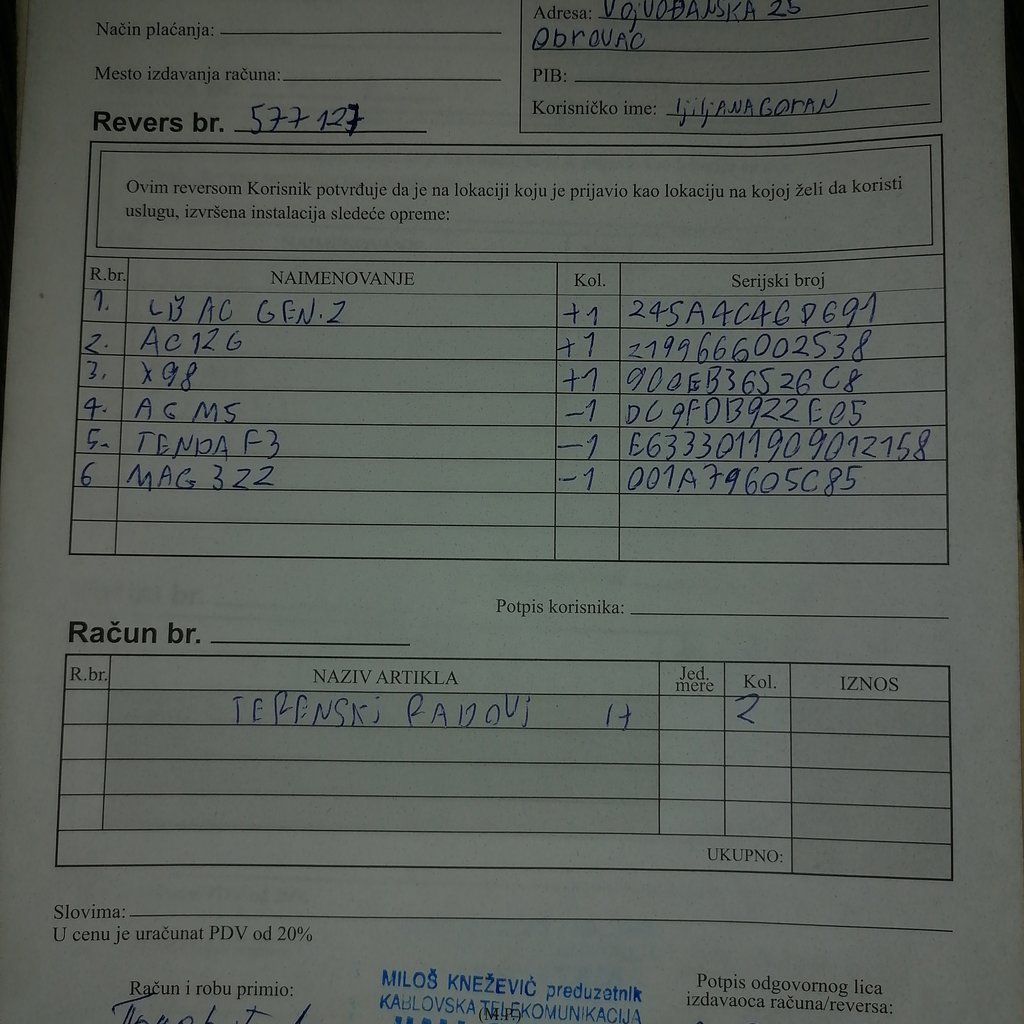 Adresa: VOJVOĐANSKA 25
Način plaćanja:
OBROVAC
Mesto izdavanja računa:
PIB:
Korisničko ime: ljiljANAGORAN
Revers br. 577127
Ovim reversom Korisnik potvrđuje da je na lokaciji koju je prijavio kao lokaciju na kojoj želi da koristi
uslugu, izvršena instalacija sledeće opreme:
R.br. NAIMENOVANJE Kol. Serijski broj
1. LB AC GEN.2 +1 245A4C46D691
2. AC12G +1 2199666002538
3. X98 +1 900EB36526C8
4. AG M5 -1 DC9FDB922E05
5. TENDA F3 -1 E6333011909012158
6 MAG 322 -1 001A79605C85
Potpis korisnika:
Račun br.
R.br. NAZIV ARTIKLA Jed. mere Kol. IZNOS
TERENSKI RADOVI 2
UKUPNO:
Slovima:
U cenu je uračunat PDV od 20%
Račun i robu primio:
MILOŠ KNEŽEVIĆ preduzetnik
KABLOVSKA TELEKOMUNIKACIJA
(M.P.)
Potpis odgovornog lica
izdavaoca računa/reversa: